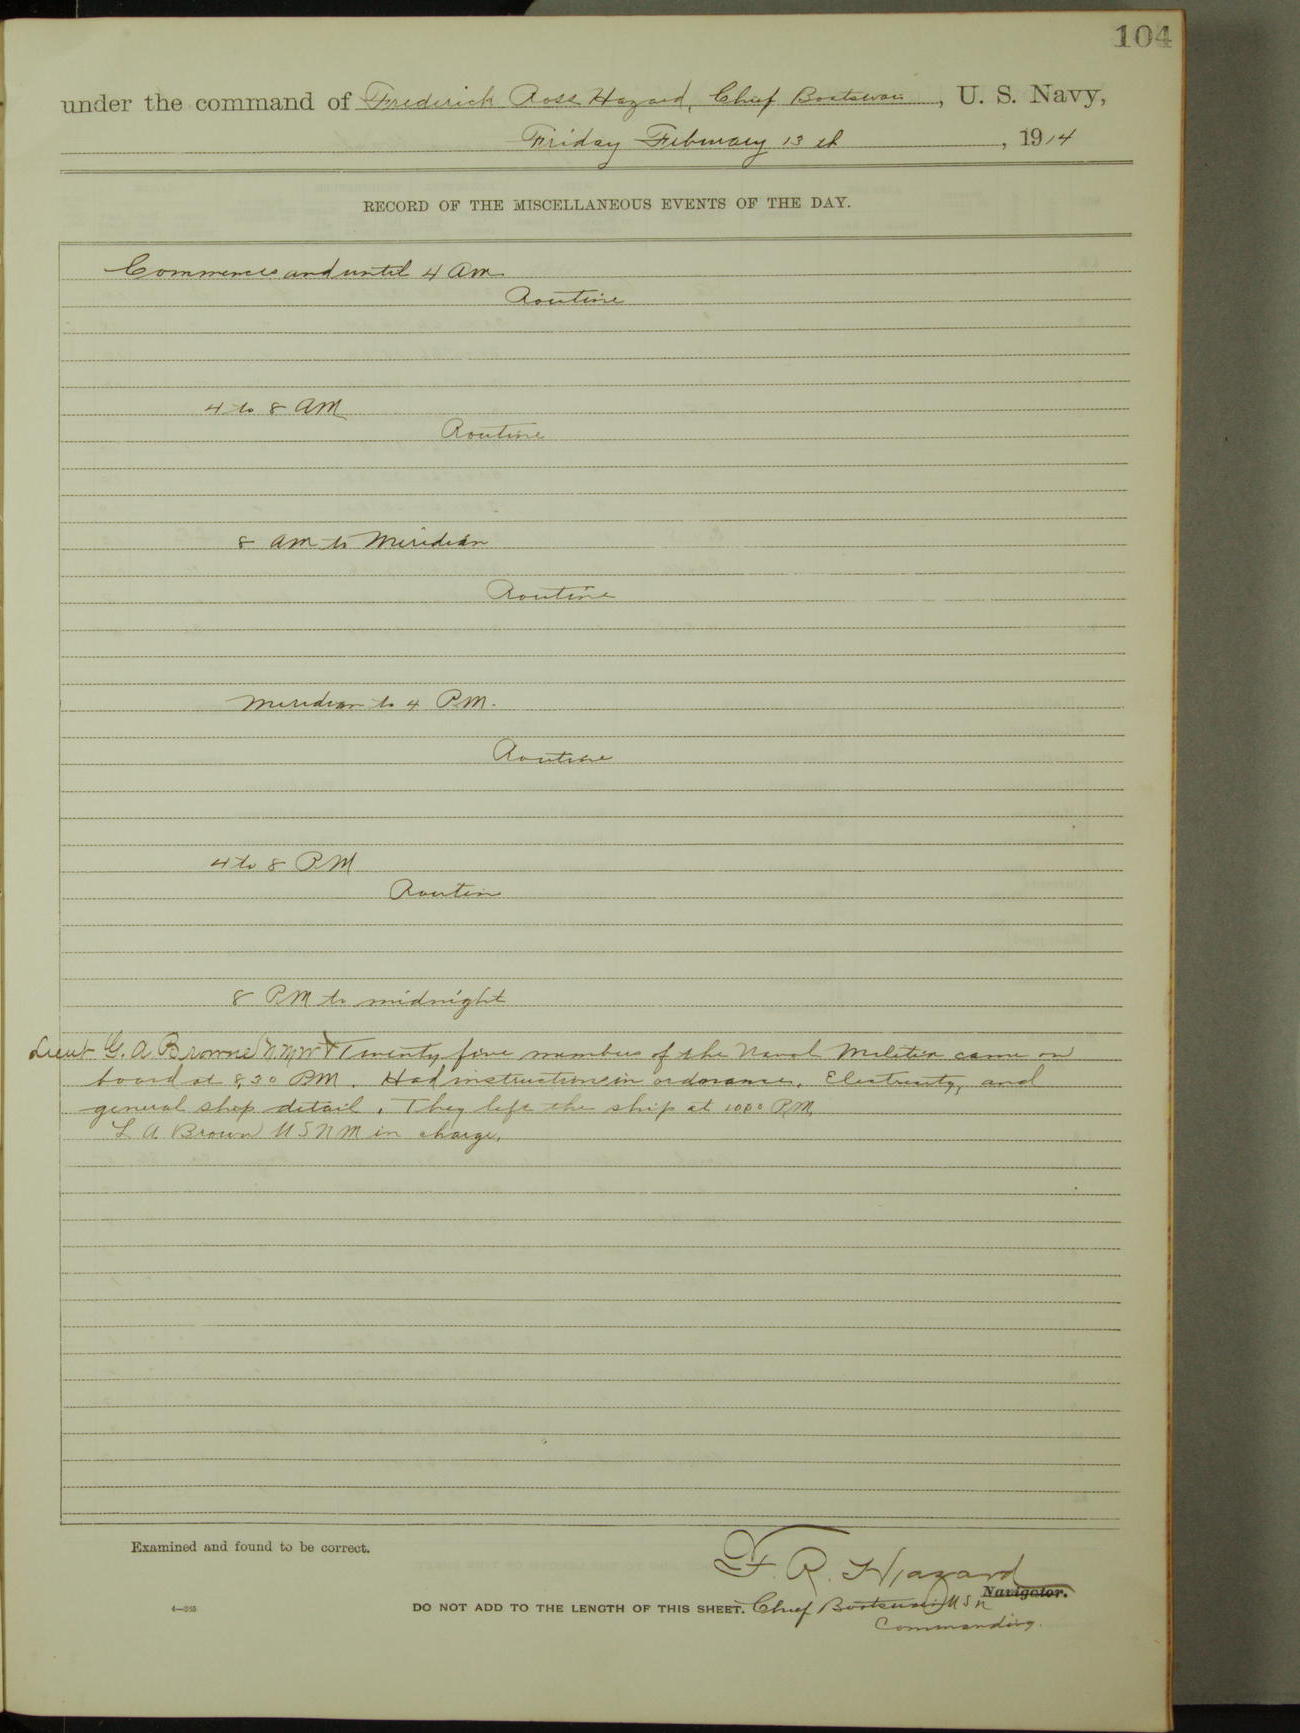 104
under the command of Frederick Rose Hazard, Chief Boatswain, U. S. Navy,
Friday February 13th, 1914
RECORD OF THE MISCELLANEOUS EVENTS OF THE DAY.
Commences and until 4 am
Routine
4 to 8 AM
Routine
8 am to Meridian
Routine
Meridian to 4 PM.
Routine
4 to 8 PM
Routin
8 PM to midnight
Lieut G. A Browne Twenty five members of the Naval Militia came on
board at 8,30 PM. Had instruction in ordnance, Electricity, and
general shop detail. They left the ship at 1000 PM,
L A Brown U S N M in charge.
Examined and found to be correct.
F. R. Hazard
Navigator.
4—265
DO NOT ADD TO THE LENGTH OF THIS SHEET. Chief Boatswain U S N
Commanding.